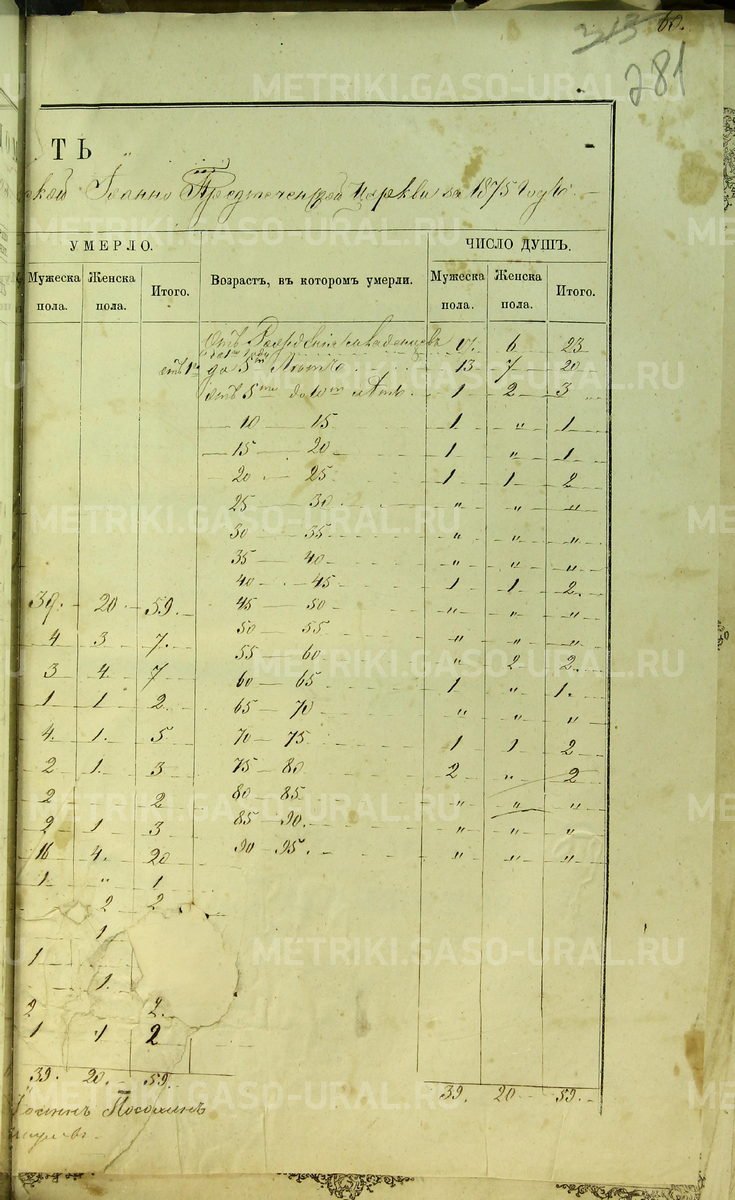 60.
313
281
ТЬ
ской Іоанно Предтеченской церкви за 1875 годъ.
УМЕРЛО. ЧИСЛО ДУШЪ.
Мужеска пола. Женска пола. Итого. Возрастъ, въ которомъ умерли. Мужеска пола. Женска пола. Итого.
Отъ 6 23
до 5 13 7 20
отъ 5 до 10 лѣтъ. 1 2 3
10 — 15 1 " 1
15 — 20 1 " 1
20 — 25 1 1 2
25 — 30 " " "
30 — 35 " " "
35 — 40 " " "
40 — 45 1 1 2
39. 20 59. 45 — 50 " " "
4 3 7. 50 — 55 " " "
55 60 " 2 2.
3 4 7 60 — 65 1 " 1.
1 1 2 65 — 70 " " "
4. 1. 5 70 — 75 1 1 2
2 1. 3 75 — 80 2 " 2
2 2 80 — 85 " " "
2 1 3 85 — 90. " " "
16 4. 20 90 — 95. " " "
1 " 1
2 2
1
1
1.
2 2.
1 1 2
39. 20. 59. 39. 20 59.
Іоаннъ
METRIKI.GASO-URAL.RU